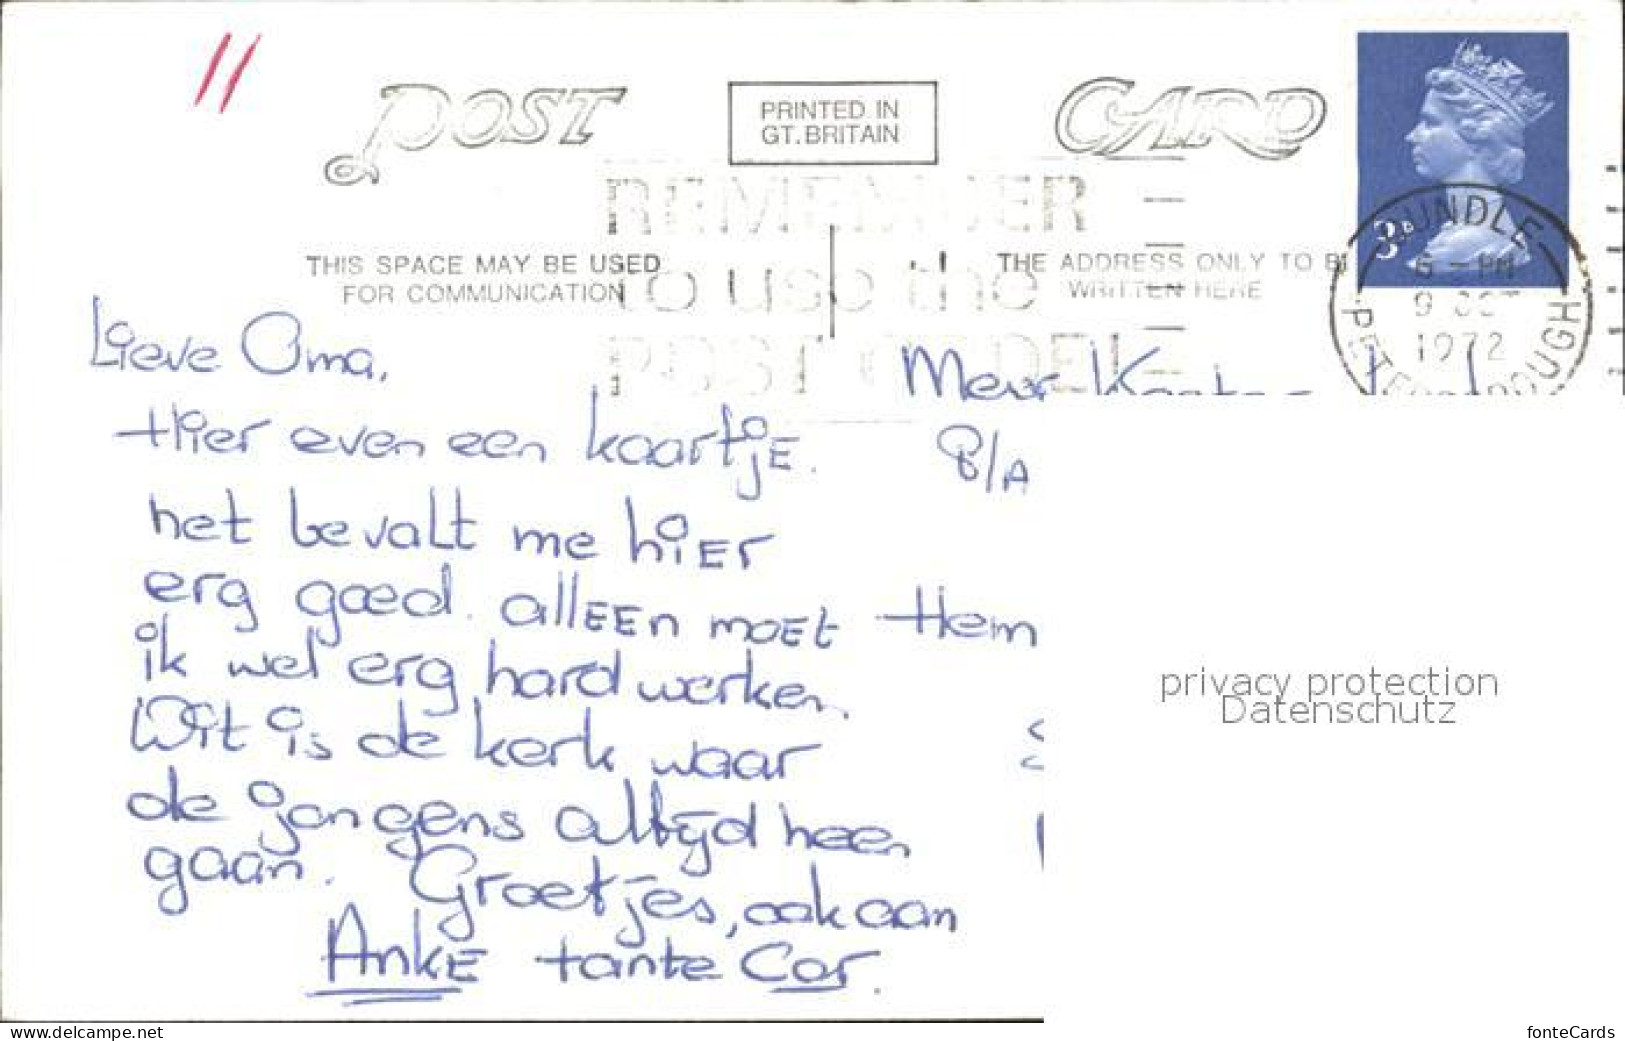 POST
PRINTED IN
GT. BRITAIN
CARD
REMEMBER
to use the
POST CODE
THIS SPACE MAY BE USED
FOR COMMUNICATION
THE ADDRESS ONLY TO B
WRITTEN HERE
3P
OUNDLE
6 - PM
9 OCT
1972
PETERBOROUGH
Lieve Oma,
Hier even een kaartje.
het bevalt me hier
erg goed. alleen moet
ik wel erg hard werken.
Dit is de kerk waar
de jongens altijd heen
gaan. Groetjes, ook aan
Anke tante Cor.
Mevr
8/A
Hem
privacy protection
Datenschutz
www.delcampe.net
fonteCards